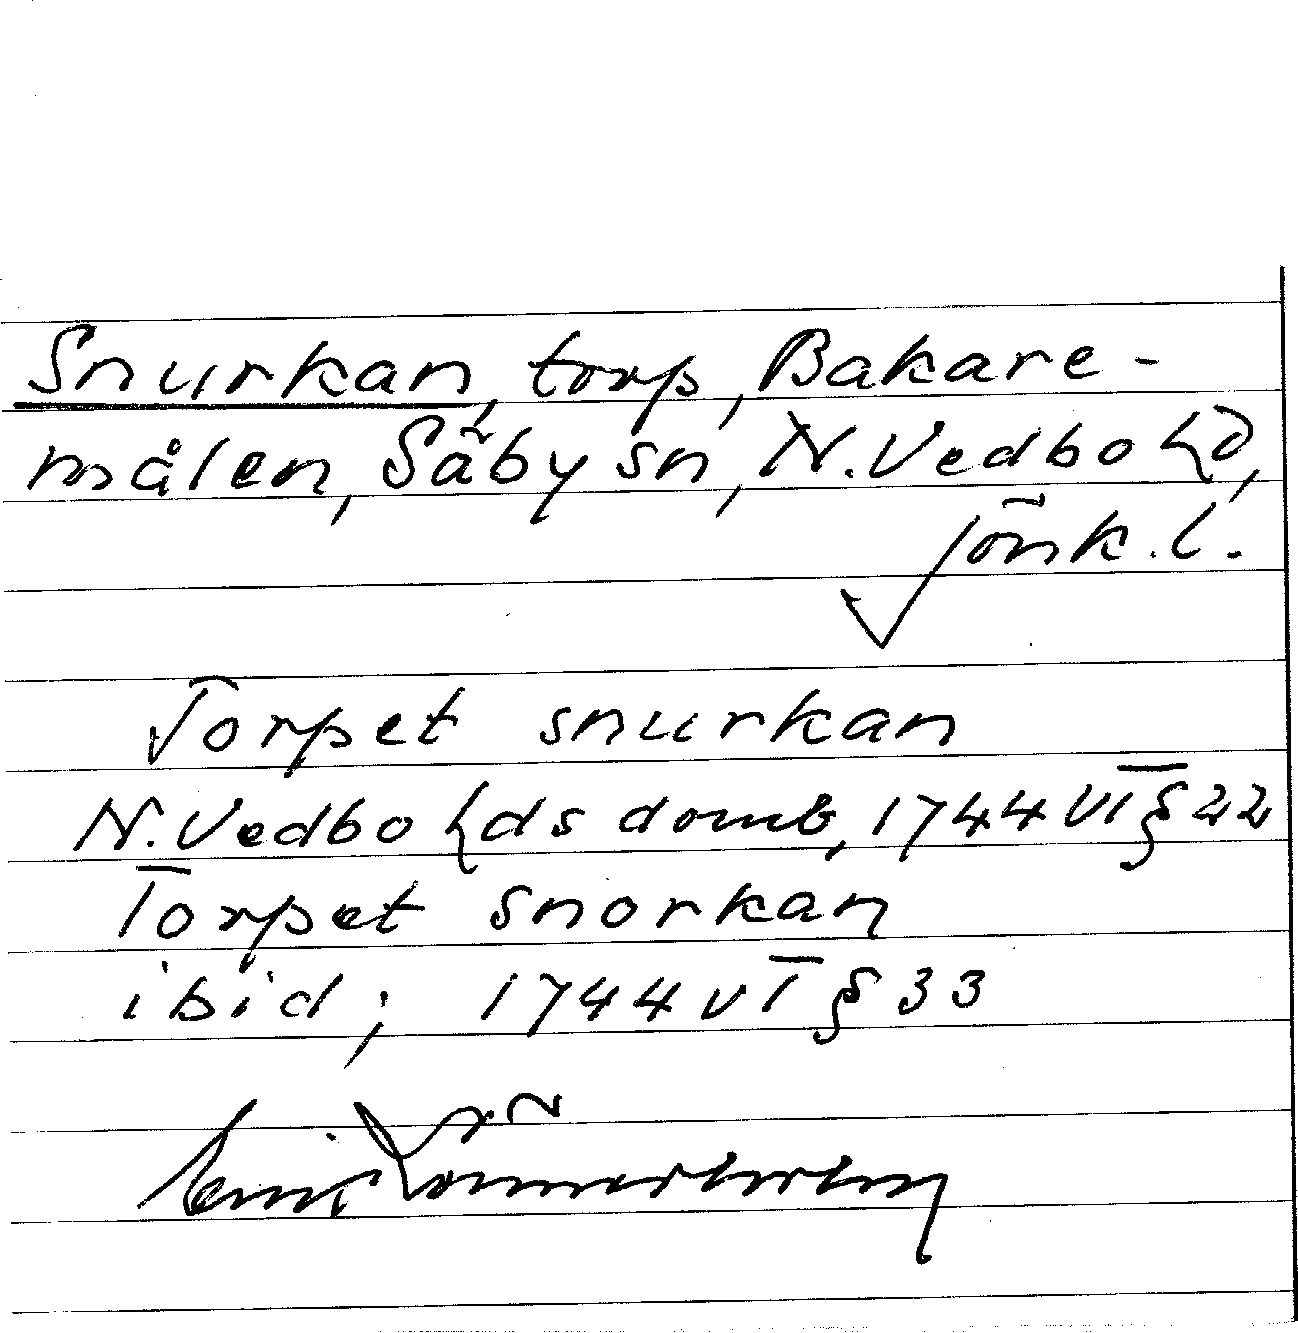 Snurkan, torp, Bakare-
målen, Säby sn, N. Vedbo hd,
Jönk. l.
Torpet snurkan
N. Vedbo hds domb, 1744 VI § 22
Torpet snorkan
ibid; 1744 VI § 33